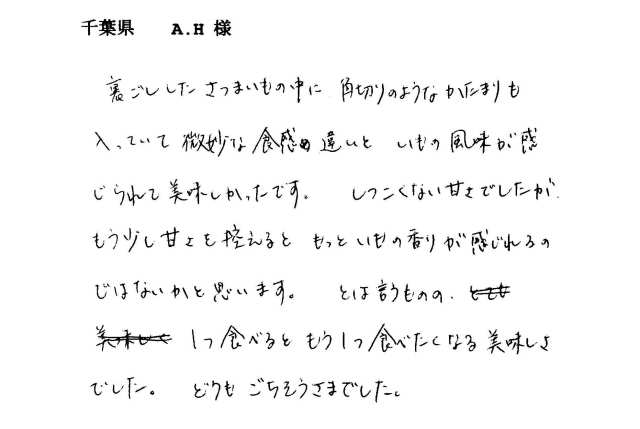 千葉県 A.H 様
裏ごししたさつまいもの中に 角切りのようなかたまりも
入っていて 微妙な食感の違いと いもの風味が感
じられて美味しかったです。 しつこくない甘さでしたが、
もう少し甘さを控えると もっといもの香りが感じれるの
ではないかと思います。 とは言うものの、とても
美味しく 1つ食べるともう1つ食べたくなる美味しさ
でした。 どうも ごちそうさまでした。